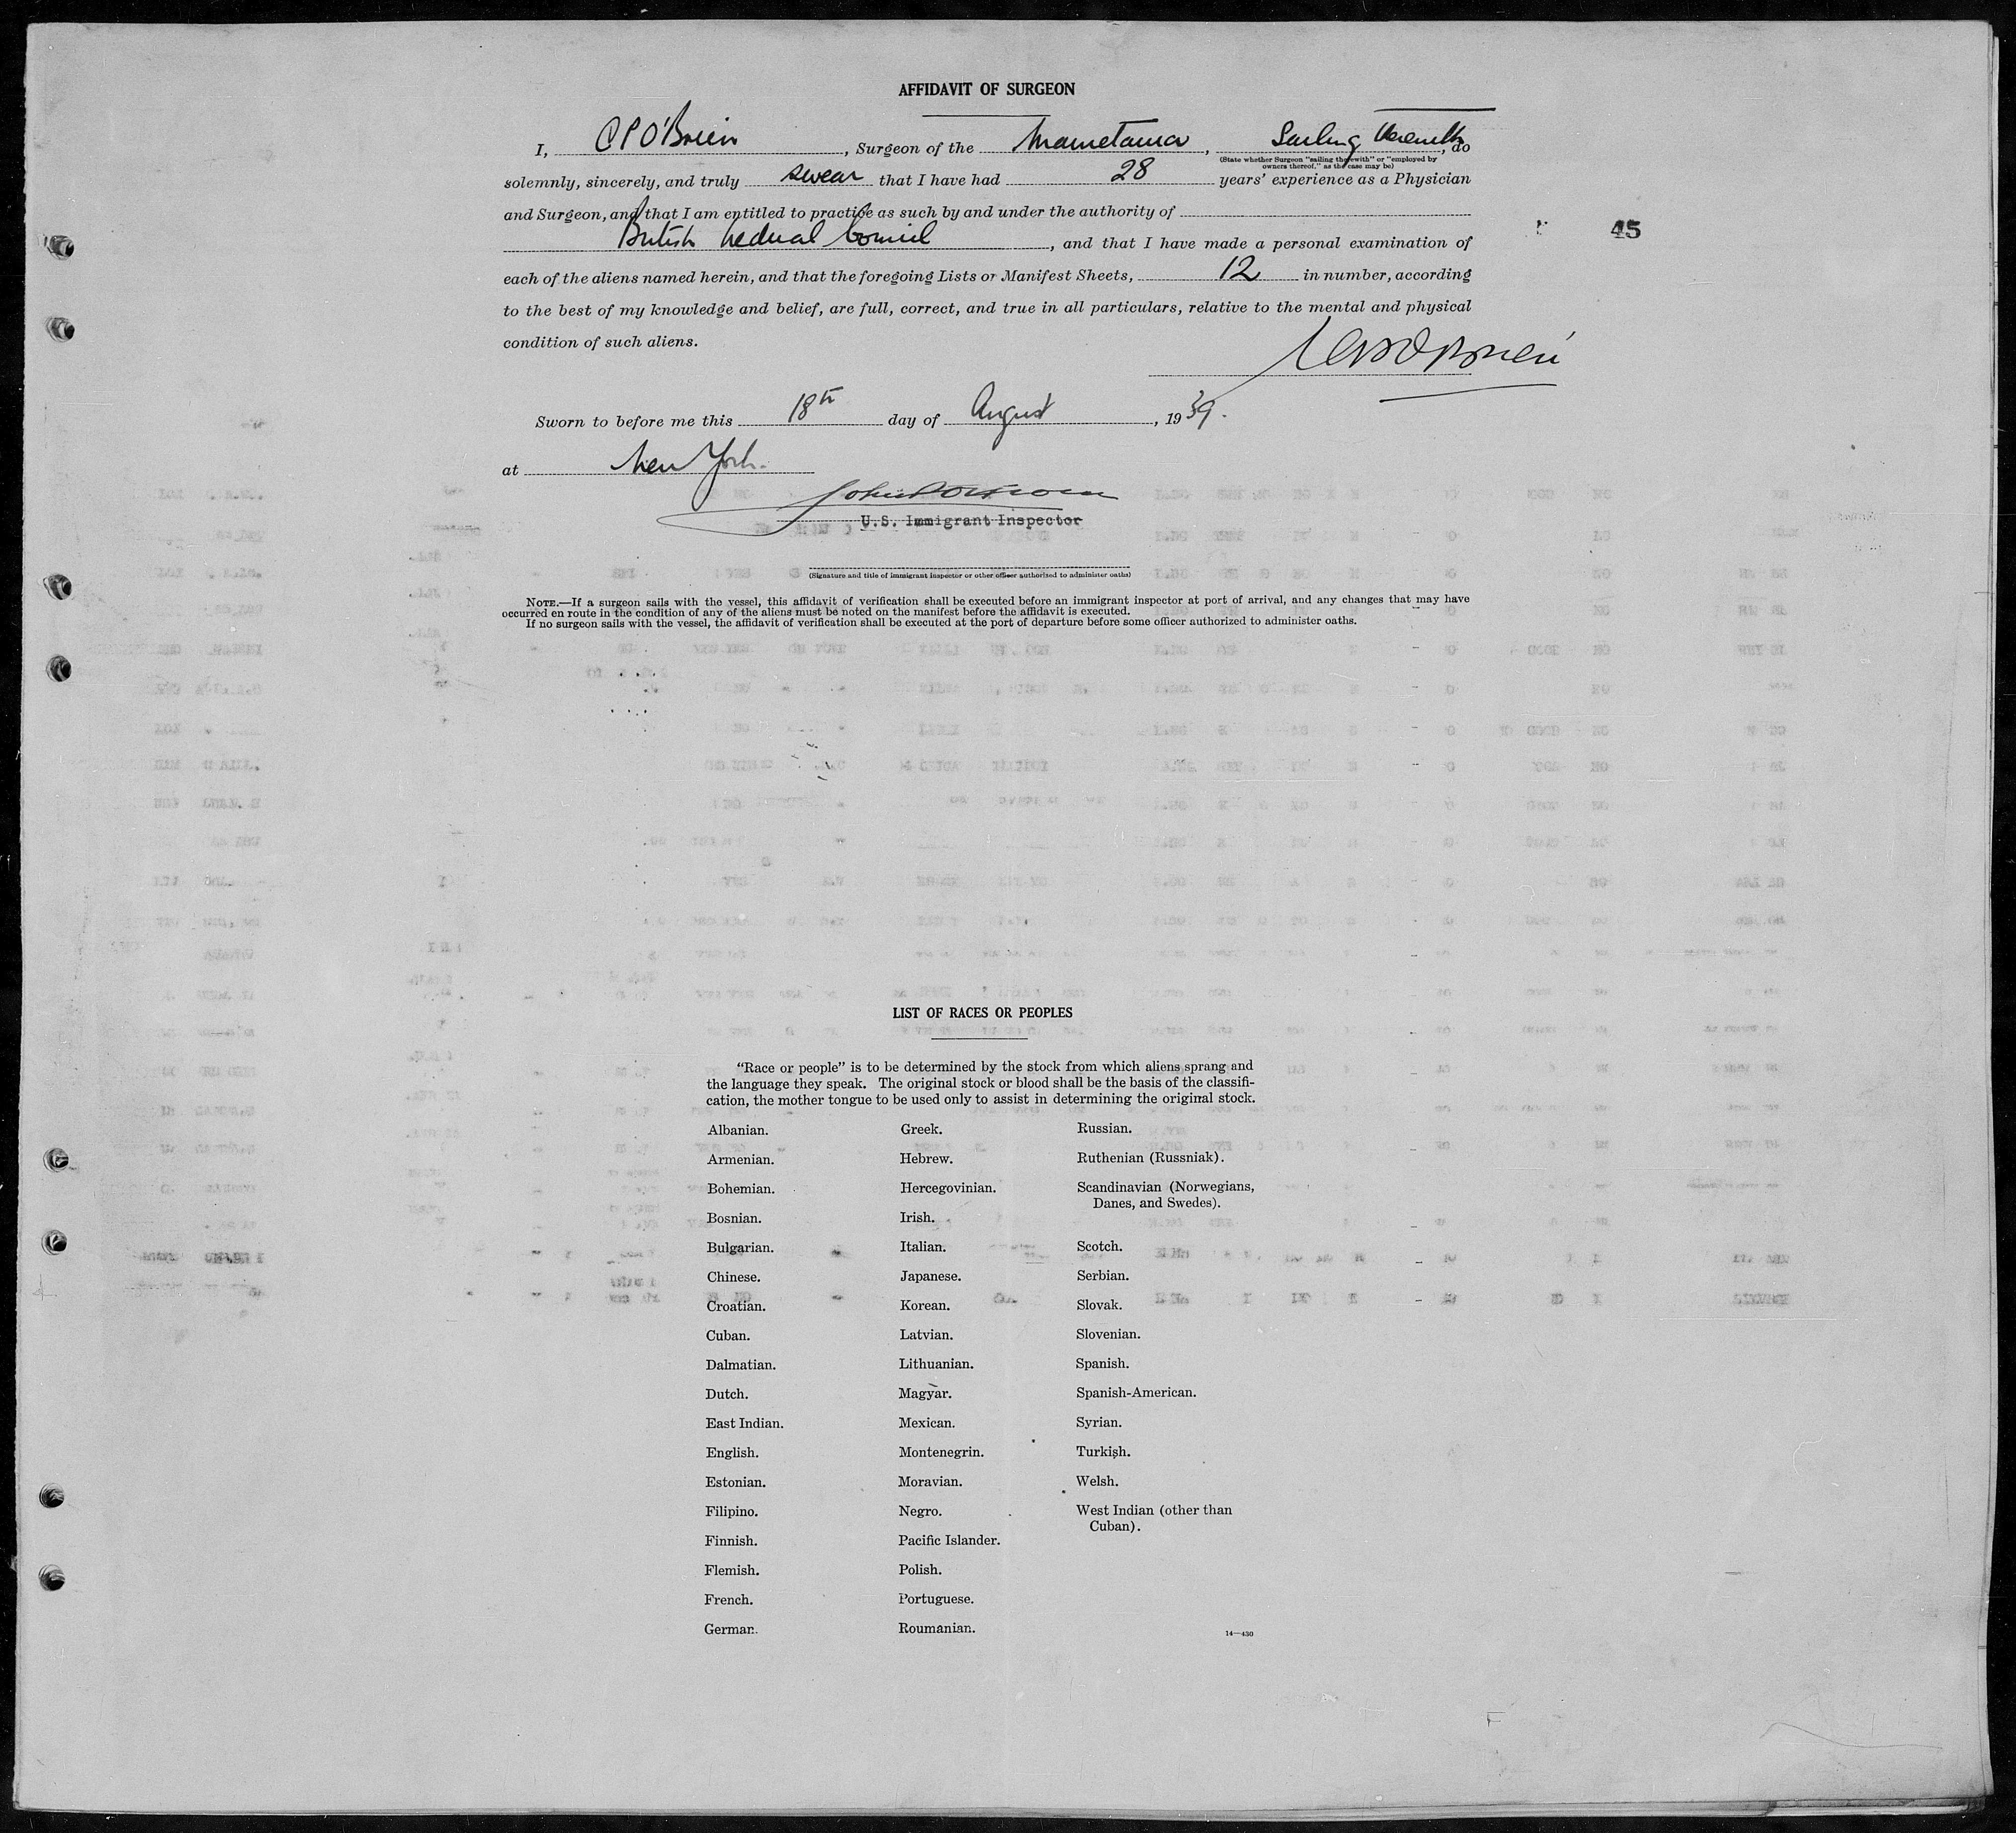 AFFIDAVIT OF SURGEON
I, C P O'Brien, Surgeon of the Mauretania, Sailing therewith, do
(State whether Surgeon "sailing therewith" or "employed by
owners thereof," as the case may be)
solemnly, sincerely, and truly swear that I have had 28 years' experience as a Physician
and Surgeon, and that I am entitled to practice as such by and under the authority of
British Medical Council, and that I have made a personal examination of
45
each of the aliens named herein, and that the foregoing Lists or Manifest Sheets, 12 in number, according
to the best of my knowledge and belief, are full, correct, and true in all particulars, relative to the mental and physical
condition of such aliens.
CPO'Brien
Sworn to before me this 18th day of August, 1939.
at New York.
U.S. Immigrant Inspector
(Signature and title of immigrant inspector or other officer authorized to administer oaths)
NOTE.—If a surgeon sails with the vessel, this affidavit of verification shall be executed before an immigrant inspector at port of arrival, and any changes that may have
occurred en route in the condition of any of the aliens must be noted on the manifest before the affidavit is executed.
If no surgeon sails with the vessel, the affidavit of verification shall be executed at the port of departure before some officer authorized to administer oaths.
LIST OF RACES OR PEOPLES
"Race or people" is to be determined by the stock from which aliens sprang and
the language they speak. The original stock or blood shall be the basis of the classifi-
cation, the mother tongue to be used only to assist in determining the original stock.
Albanian.
Armenian.
Bohemian.
Bosnian.
Bulgarian.
Chinese.
Croatian.
Cuban.
Dalmatian.
Dutch.
East Indian.
English.
Estonian.
Filipino.
Finnish.
Flemish.
French.
German.
Greek.
Hebrew.
Hercegovinian.
Irish.
Italian.
Japanese.
Korean.
Latvian.
Lithuanian.
Magyar.
Mexican.
Montenegrin.
Moravian.
Negro.
Pacific Islander.
Polish.
Portuguese.
Roumanian.
Russian.
Ruthenian (Russniak).
Scandinavian (Norwegians,
Danes, and Swedes).
Scotch.
Serbian.
Slovak.
Slovenian.
Spanish.
Spanish-American.
Syrian.
Turkish.
Welsh.
West Indian (other than
Cuban).
14—430